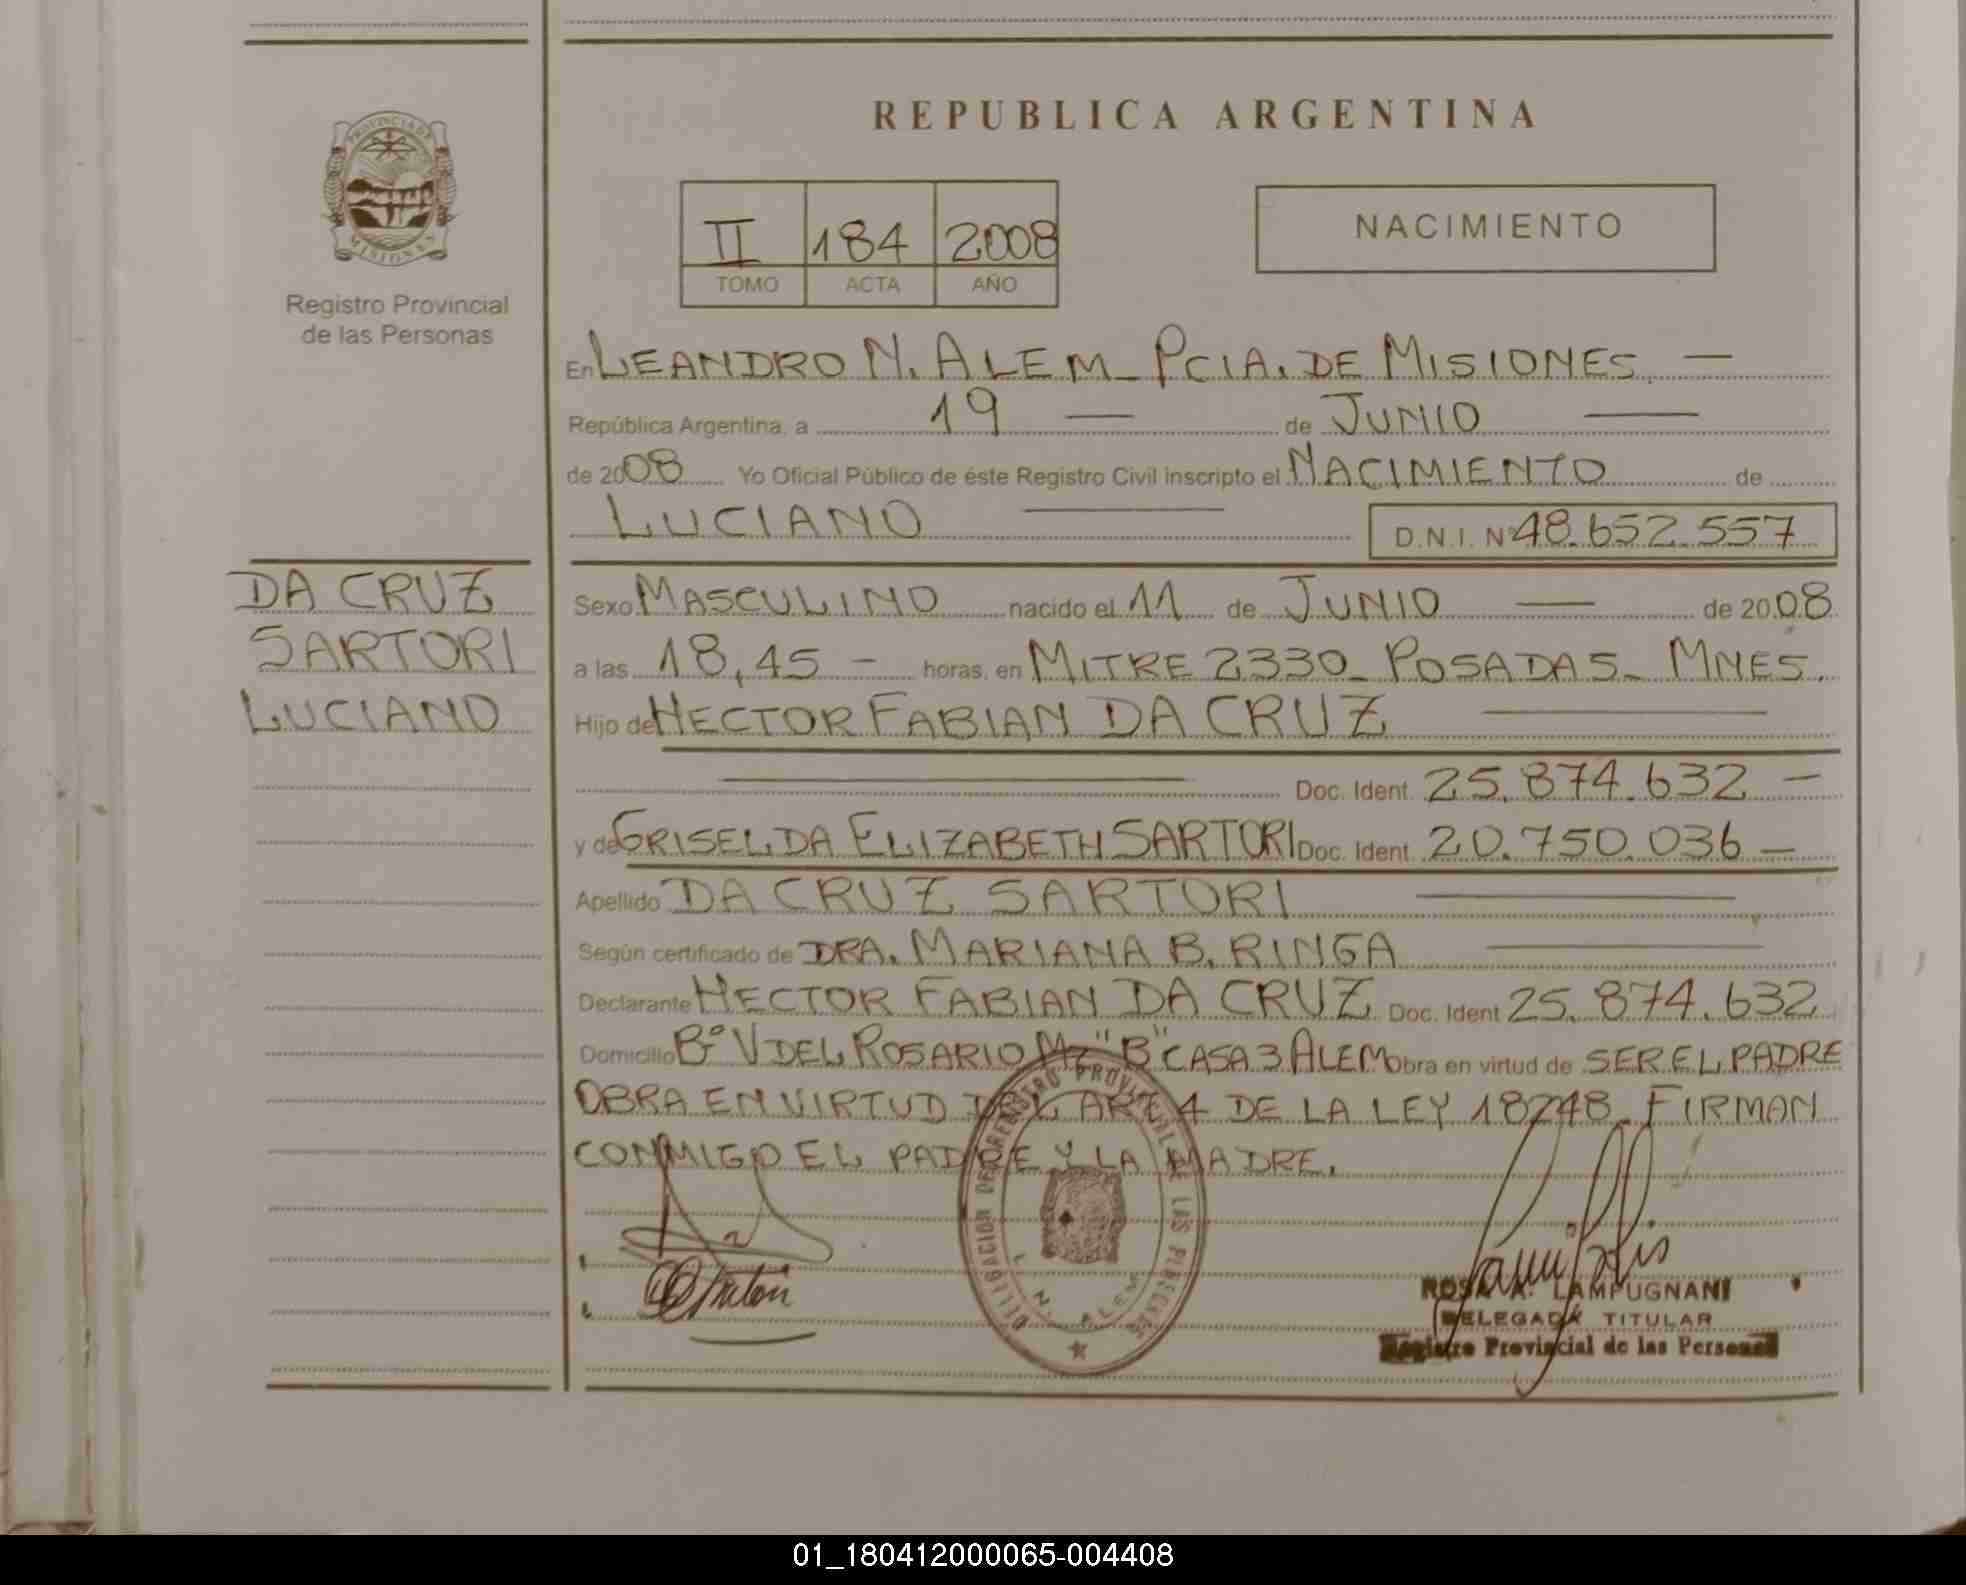 REPUBLICA ARGENTINA
PROVINCIA DE
MISIONES
Registro Provincial
de las Personas
II 184 2008
TOMO ACTA AÑO
NACIMIENTO
En LEANDRO N. ALEM_ PCIA. DE MISIONES. —
República Argentina, a 19 — de JUNIO —
de 2008 Yo Oficial Público de éste Registro Civil inscripto el NACIMIENTO de
LUCIANO — D.N.I. Nº 48.652.557
DA CRUZ
SARTORI
LUCIANO
Sexo MASCULINO nacido el 11 de JUNIO — de 2008
a las 18,45 – horas, en MITRE 2330_ POSADAS_ MNES.
Hijo de HECTOR FABIAN DA CRUZ —
— Doc. Ident. 25.874.632 –
y de GRISELDA ELIZABETH SARTORI Doc. Ident. 20.750.036 –
Apellido DA CRUZ SARTORI —
Según certificado de DRA. MARIANA B. RINGA —
Declarante HECTOR FABIAN DA CRUZ Doc. Ident 25.874.632
Domicilio Bº V DEL ROSARIO Mz "B" CASA 3 ALEM Obra en virtud de SER EL PADRE
OBRA EN VIRTUD DEL ART 4 DE LA LEY 18248_ FIRMAN
CONMIGO EL PADRE Y LA MADRE.
DELEGACION DE REGISTRO PROVINCIAL DE LAS PERSONAS
L. N. ALEM
ROSA A. LAMPUGNANI
DELEGADA TITULAR
Registro Provincial de las Personas
01_180412000065-004408